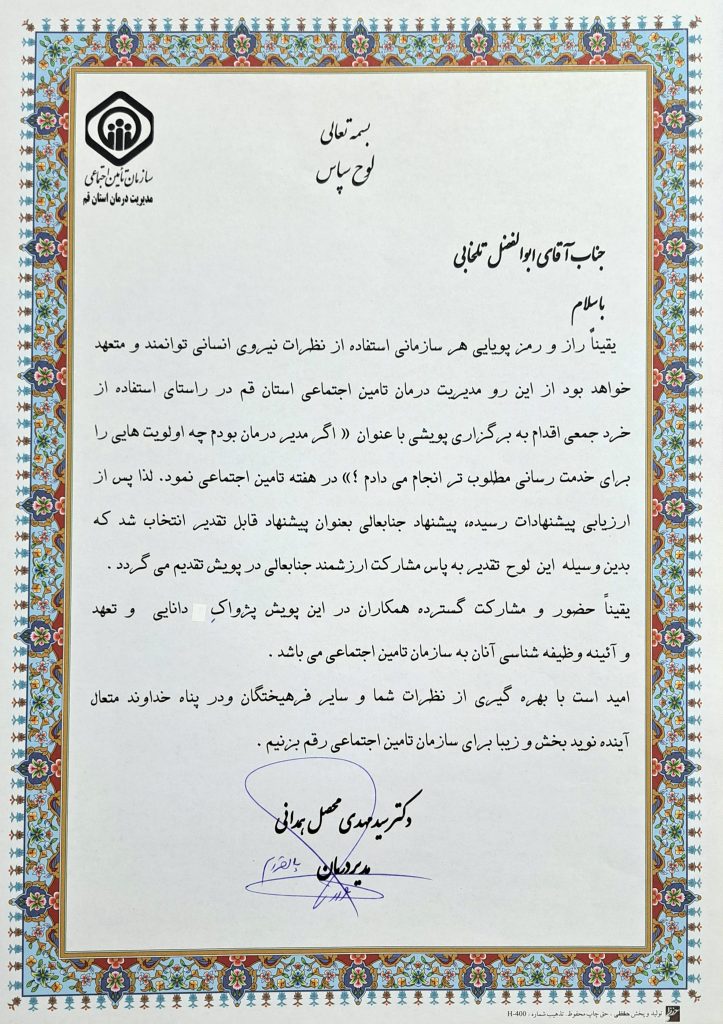 بسمه تعالی
لوح سپاس
سازمان تأمین اجتماعی
مدیریت درمان استان قم
جناب آقای ابوالفضل تلخابی
باسلام
یقیناً راز و رمز پویایی هر سازمانی استفاده از نظرات نیروی انسانی توانمند و متعهد
خواهد بود از این رو مدیریت درمان تامین اجتماعی استان قم در راستای استفاده از
خرد جمعی اقدام به برگزاری پویشی با عنوان « اگر مدیر درمان بودم چه اولویت هایی را
برای خدمت رسانی مطلوب تر انجام می دادم ؟» در هفته تامین اجتماعی نمود. لذا پس از
ارزیابی پیشنهادات رسیده، پیشنهاد جنابعالی بعنوان پیشنهاد قابل تقدیر انتخاب شد که
بدین وسیله این لوح تقدیر به پاس مشارکت ارزشمند جنابعالی در پویش تقدیم می گردد .
یقیناً حضور و مشارکت گسترده همکاران در این پویش پژواکِ دانایی و تعهد
و آئینه وظیفه شناسی آنان به سازمان تامین اجتماعی می باشد .
امید است با بهره گیری از نظرات شما و سایر فرهیختگان ودر پناه خداوند متعال
آینده نوید بخش و زیبا برای سازمان تامین اجتماعی رقم بزنیم .
دکتر سید مهدی محصل همدانی
مدیر درمان
تولید و پخش حفظی . حق چاپ محفوظ. تذهیب شماره : H-400